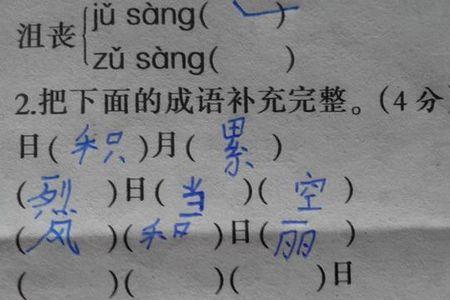 沮丧{jǔ sàng( )
zǔ sàng( )
2.把下面的成语补充完整。(4分
日(积)月(累)
(烈)日(当)(空)
(风)(和)日(丽)
( )( )( )日